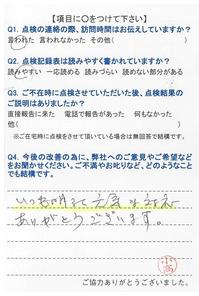 【項目に○をつけて下さい】
Q1. 点検の連絡の際、訪問時間はお伝えしていますか？
言われた　言われなかった　その他(　　　　)
Q2. 点検記録表は読みやすく書かれていますか？
読みやすい　一応読める　読みづらい　読めない部分がある
Q3. ご不在時に点検させていただいた後、点検結果の
ご説明はありましたか？
直接報告に来た　電話で報告があった　何もなかった
その他(　　　　)
※ご在宅時に点検をさせて頂いている場合は無回答で結構です。
Q4. 今後の改善の為に、弊社へのご意見やご希望など
をお聞かせください。ご不満やお叱りなど、どのようなこと
でも結構です。
いつも明るく元気な対応
ありがとうございます。
ご協力ありがとうございました。